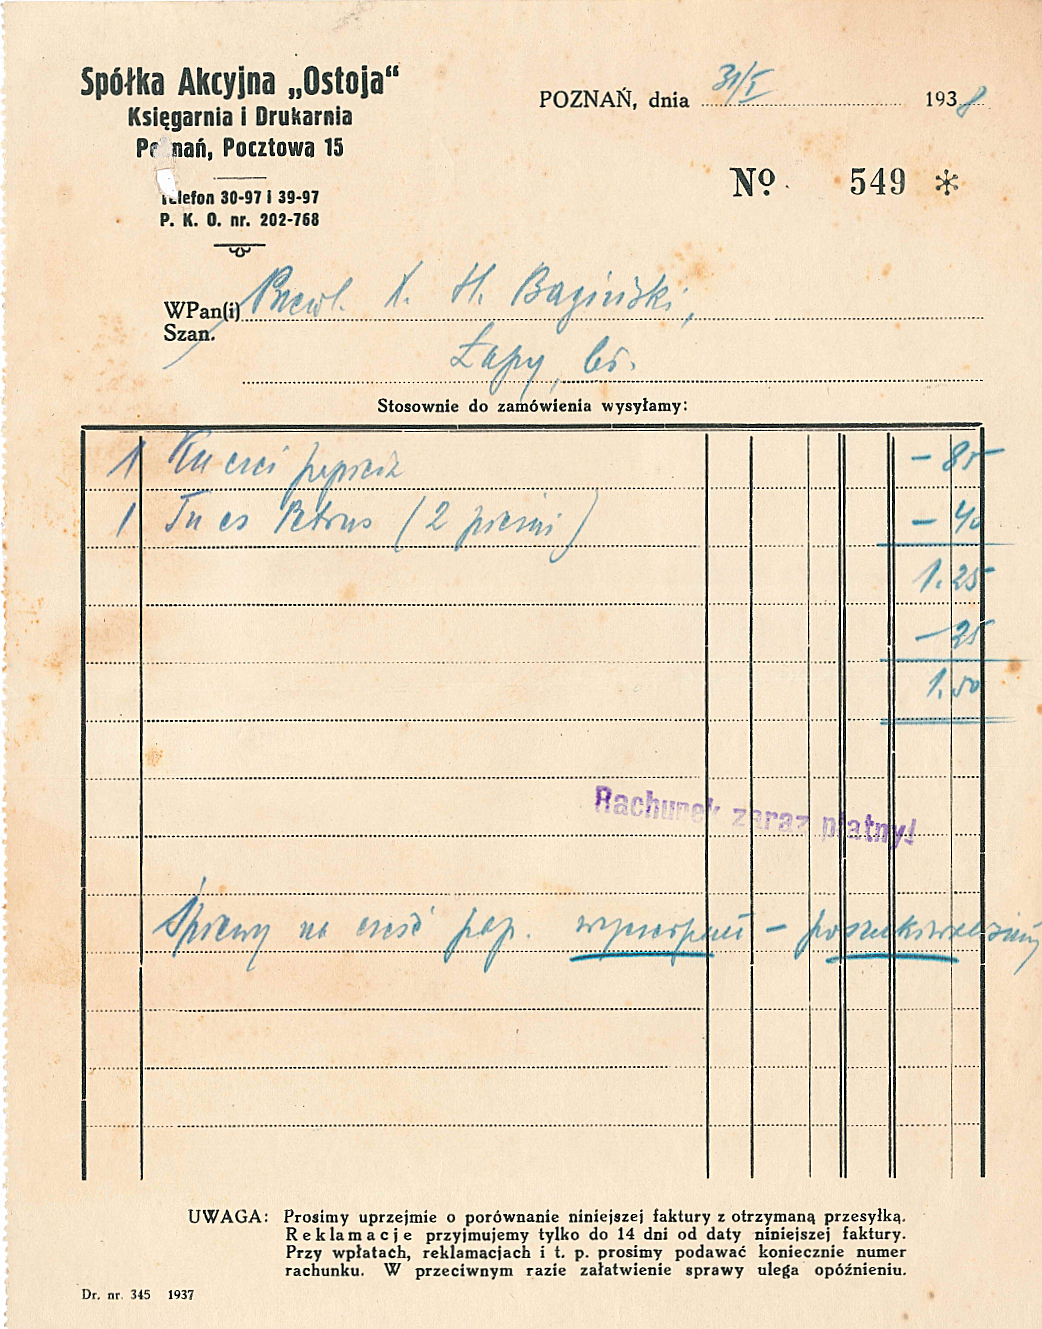 Spółka Akcyjna „Ostoja“
Księgarnia i Drukarnia
Poznań, Pocztowa 15
Telefon 30-97 i 39-97
P. K. O. nr. 202-768
POZNAŃ, dnia 31/I 1938
No. 549 *
WPan(i) Przewl. X. H. Bagiński,
Szan.
Łapy, bś.
Stosownie do zamówienia wysyłamy:
1 Ku czci papieża — 85
1 Tu es Petrus (2 pieśni) — 40
1.25
— 25
1.50
Rachunek zaraz płatny!
Śpiewy na cześć pap. wyczerpane — poszukiwaliśmy
UWAGA: Prosimy uprzejmie o porównanie niniejszej faktury z otrzymaną przesyłką.
Reklamacje przyjmujemy tylko do 14 dni od daty niniejszej faktury.
Przy wpłatach, reklamacjach i t. p. prosimy podawać koniecznie numer
rachunku. W przeciwnym razie załatwienie sprawy ulega opóźnieniu.
Dr. nr. 345 1937